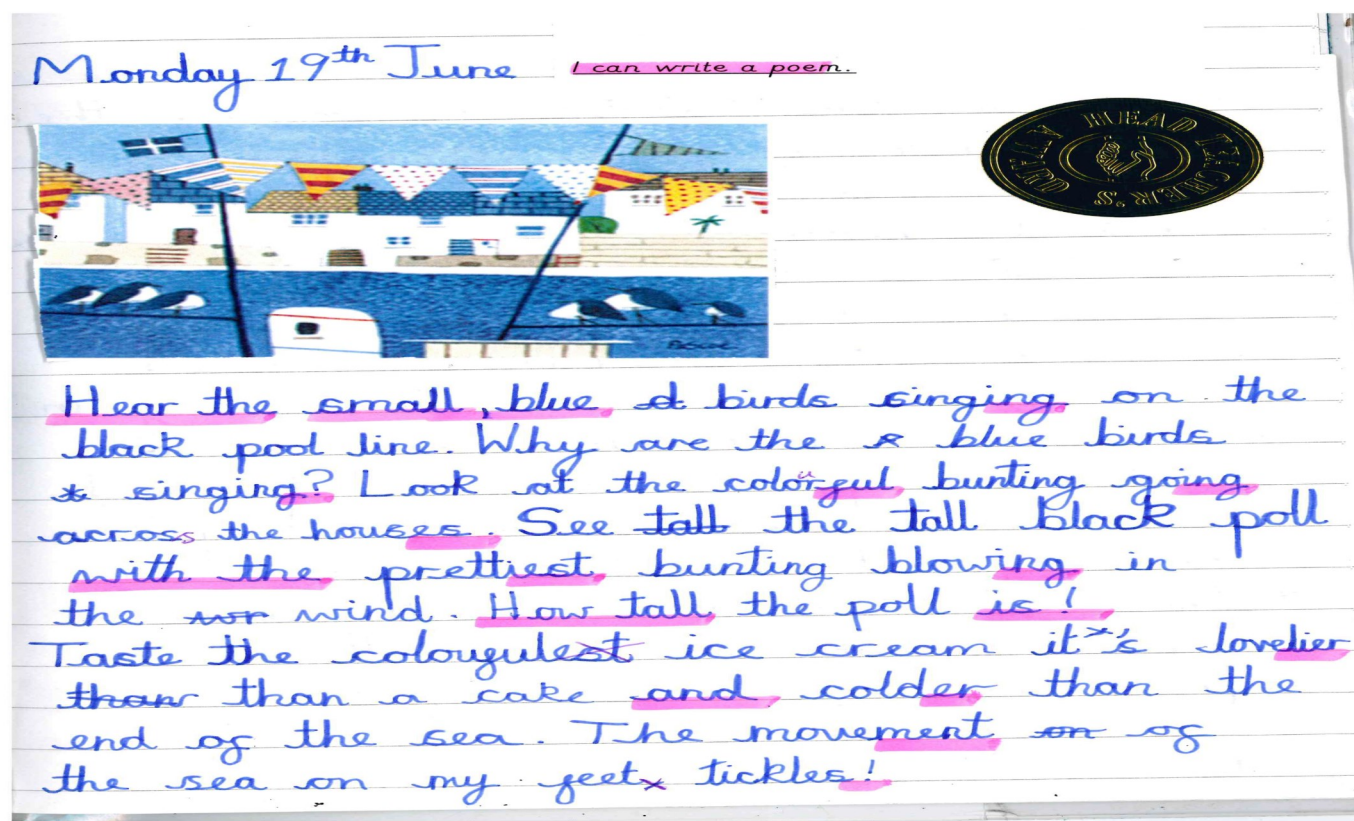 Monday 19th June
I can write a poem.
HEAD TEACHER'S
Hear the small, blue birds singing on the
black pool line. Why are the blue birds
singing? Look at the colourful bunting going
across the houses. See tall the tall black poll
with the prettiest bunting blowing in
the wind. How tall the poll is!
Taste the colourfulest ice cream it's lovelier
than than a cake and colder than the
end of the sea. The movement on of
the sea on my feet tickles!